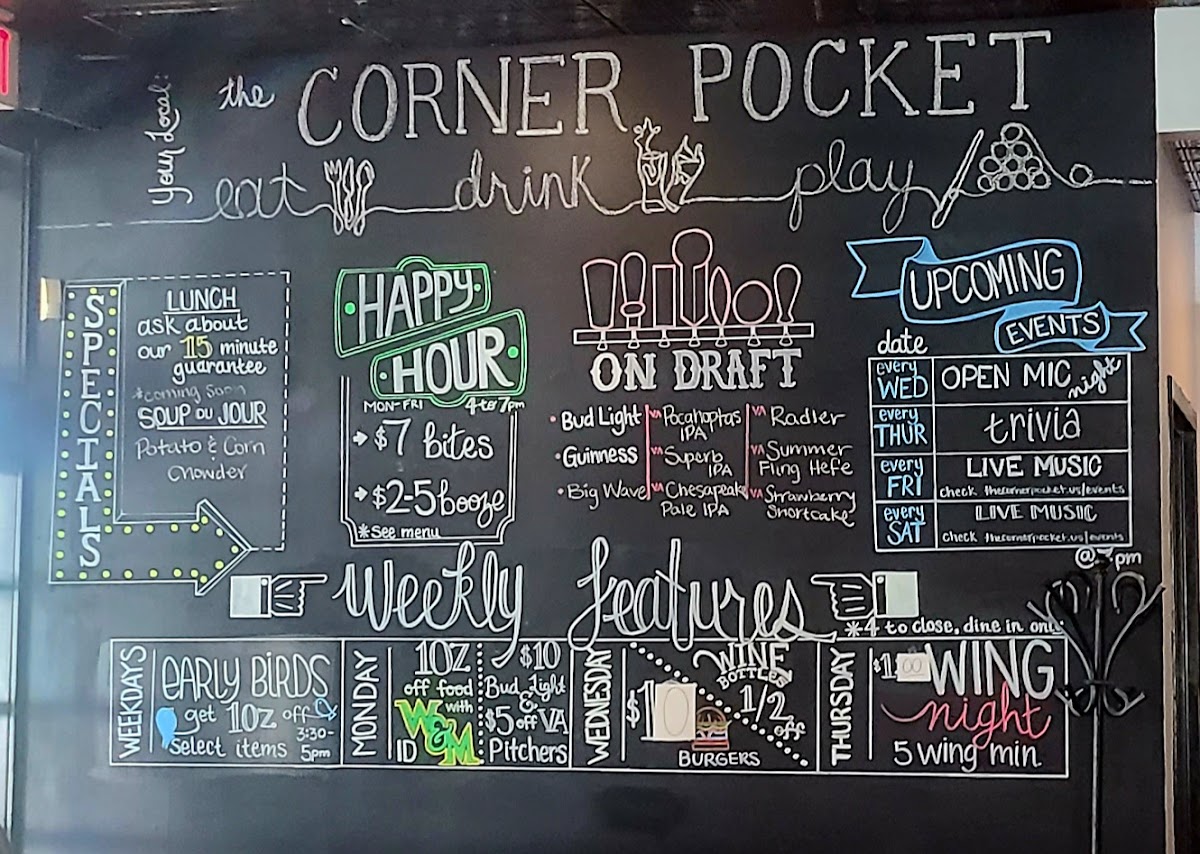 Your Local:
the CORNER POCKET
eat drink play
SPECIALS
LUNCH
ask about
our 15 minute
guarantee
*coming soon
SOUP DU JOUR
Potato & Corn
Chowder
HAPPY
HOUR
MON-FRI 4 to 7pm
$7 bites
$2-5 booze
*See menu
ON DRAFT
Bud Light
Guinness
Big Wave
VA Pocahoptas
IPA
VA Superb
IPA
VA Chesapeake
Pale IPA
VA Radler
VA Summer
Fling Hefe
VA Strawberry
Shortcake
UPCOMING
EVENTS
date
every
WED
OPEN MIC night
every
THUR
trivia
every
FRI
LIVE MUSIC
check thecornerpocket.us/events
every
SAT
LIVE MUSIC
check thecornerpocket.us/events
pm
Weekly features
*4 to close, dine in only
WEEKDAYS
EARLY BIRDS
get 10% off
select items
3:30-
5pm
MONDAY
10%
off food
with
W&M
ID
$10
Bud Light
&
$5 off VA
Pitchers
WEDNESDAY
$10
BURGERS
WINE
BOTTLES
1/2
off
THURSDAY
$1.00 WING
night
5 wing min.